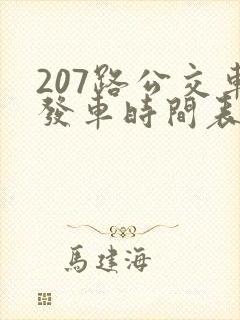 207路公交車
發車時間表
馬建海